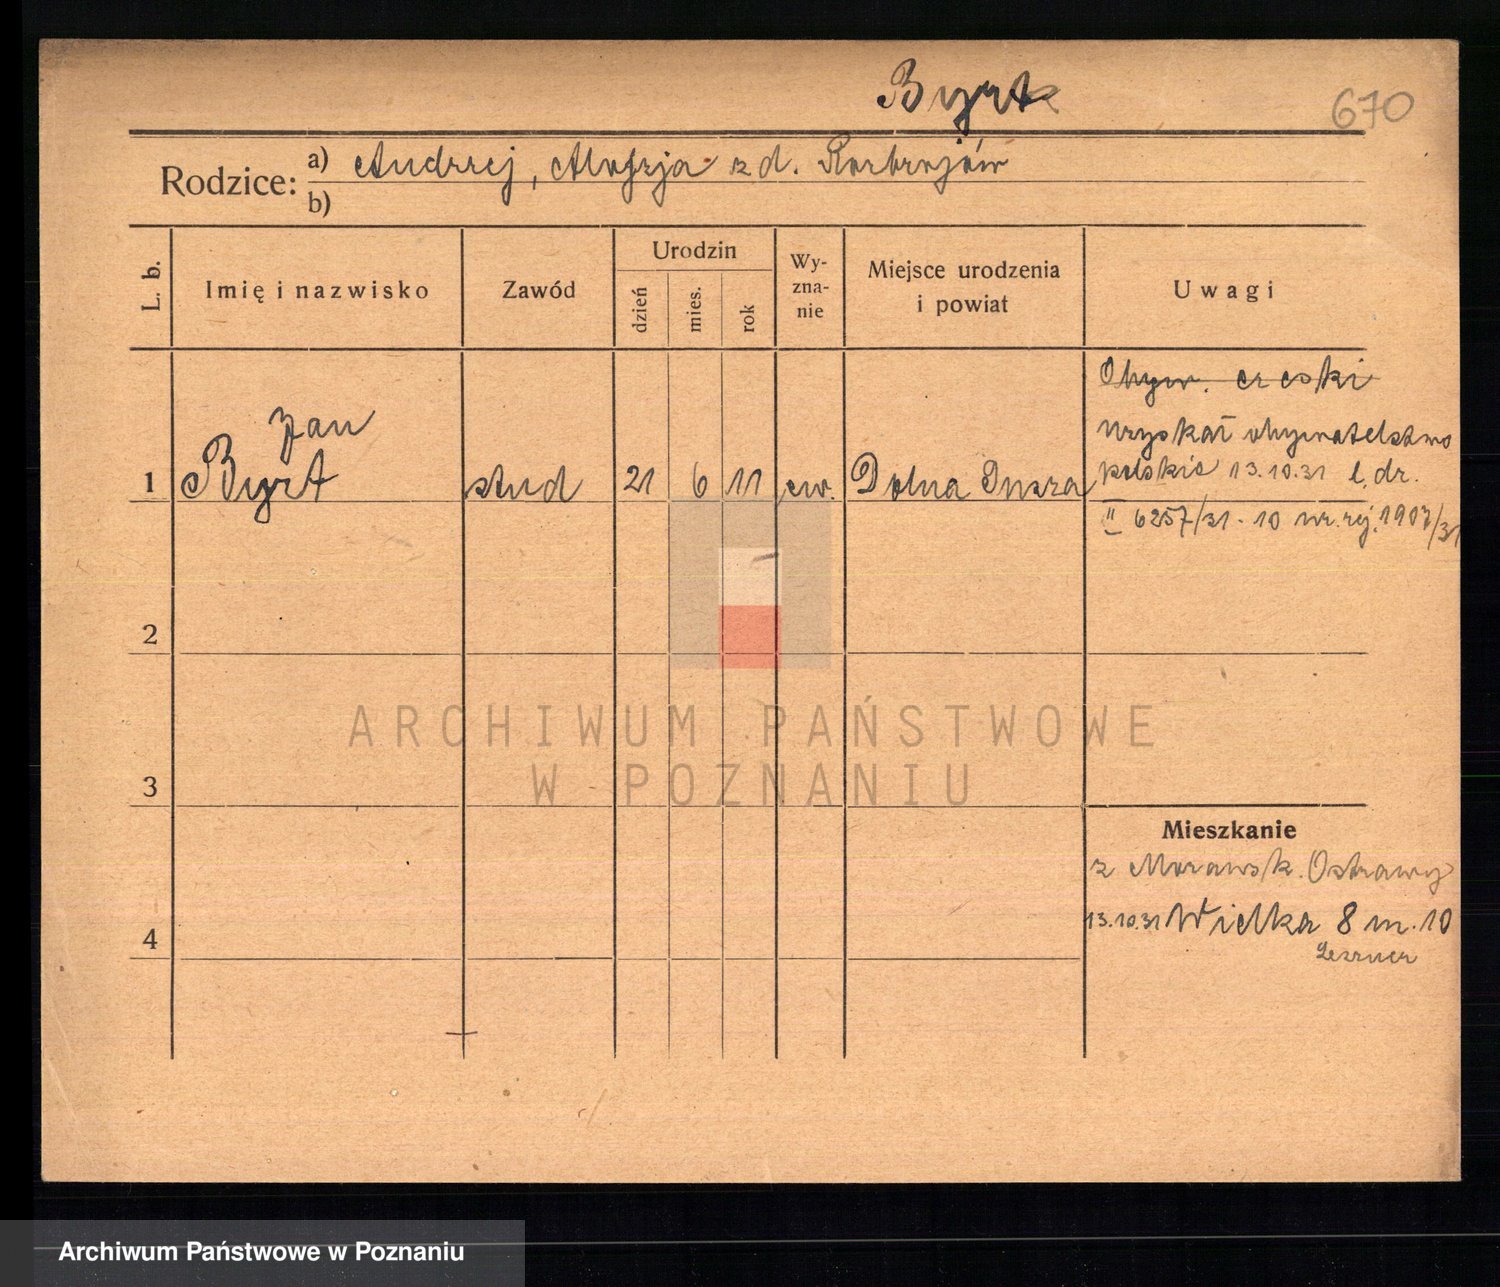 Byrt
670
Rodzice: a) Andrzej, Alojzja z d.
b)
L. b.
Imię i nazwisko
Zawód
Urodzin
dzień
mies.
rok
Wy-
zna-
nie
Miejsce urodzenia
i powiat
Uwagi
Obyw. czeski
uzyskał obywatelstwo
polskie 13.10.31 l. dr.
II 6257/31 - 10 nr. rej. 1907/31
Jan
1 Byrt stud 21 6 11 ew. Dolna
2
3
4
Mieszkanie
z Morawsk. Ostrawy
13.10.31 Wielka 8 m. 10
ARCHIWUM PAŃSTWOWE
W POZNANIU
Archiwum Państwowe w Poznaniu